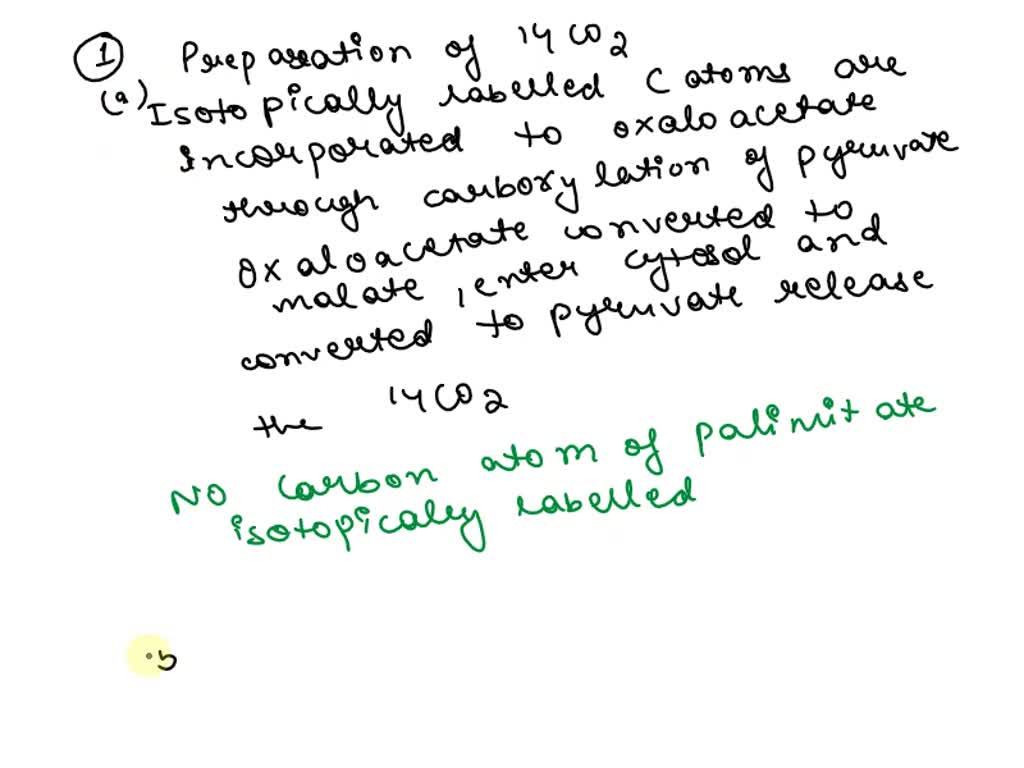 ① Preparation of 14CO2
(a) Isotopically labelled C atoms are
incorporated to oxaloacetate
through carboxylation of pyruvate
oxaloacetate converted to
malate, enter cytosol and
converted to pyruvate release
the 14CO2
NO carbon atom of palimitate
isotopically labelled